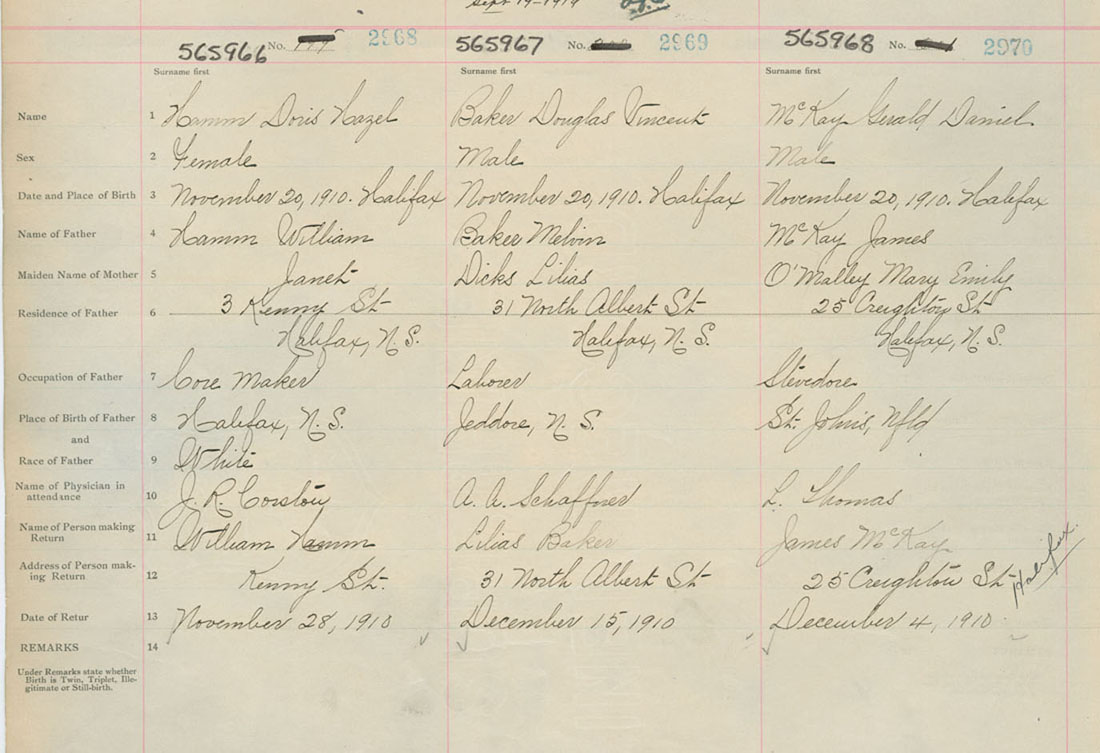 Sept 19-1919
565966 No. 2968 565967 No. 2969 565968 No. 2970
Surname first Surname first Surname first
Name 1 Hamm Doris Hazel Baker Douglas Vincent McKay Gerald Daniel
Sex 2 Female Male Male
Date and Place of Birth 3 November 20, 1910. Halifax November 20, 1910. Halifax November 20, 1910. Halifax
Name of Father 4 Hamm William Baker Melvin McKay James
Maiden Name of Mother 5 Janet Dicks Lilias O'Malley Mary Emily
Residence of Father 6 3 Kenny St 31 North Albert St 25 Creighton St
Halifax, N.S. Halifax, N.S. Halifax, N.S.
Occupation of Father 7 Core Maker Laborer Stevedore
Place of Birth of Father 8 Halifax, N.S. Jeddore, N.S. St. Johns, Nfld
and
Race of Father 9 White
Name of Physician in
attendance 10 J. R. Corston A. A. Schaffner L. Thomas
Name of Person making
Return 11 William Hamm Lilias Baker James McKay
Address of Person mak-
ing Return 12 Kenny St. 31 North Albert St 25 Creighton St Halifax
Date of Retur 13 November 28, 1910 December 15, 1910 December 4, 1910
REMARKS 14
Under Remarks state whether
Birth is Twin, Triplet, Ille-
gitimate or Still-birth.